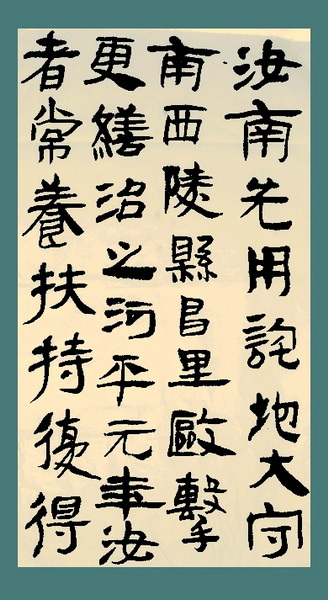 汝南先用詫地大守
南西陵縣昌里毆擊
更繕治之河平元年汝
者常養扶持復得